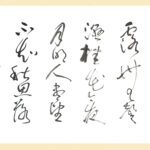 露無聲
濕桂花今夜
月明人盡望
不知秋思落